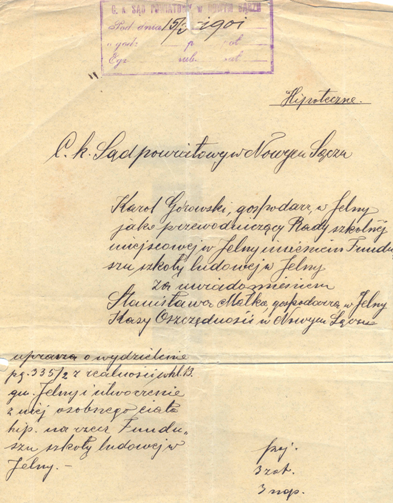 C. k. SĄD POWIATOWY w NOWYM SĄCZU
Pod. dnia 15/3 1901
o godz. p. ał.
Egz. rub. ał.
Hipoteczne.
C. k. Sąd powiatowy w Nowym Sączu
Karol Górowski, gospodarz w Jelny
jako przewodniczący Rady szkolnej
miejscowej w Jelny imieniem Fundu
szu szkoły ludowej w Jelny
za uwiadomieniem
Stanisława Matka, gospodarza w Jelny
Kasy Oszczędności w Nowym Sączu
uprasza o wydzielenie
pg. 335/2 z realności whl. 13.
gm. Jelny i utworzenie
z niej osobnego ciała
hip. na rzecz Fundu-
szu szkoły ludowej w
Jelny. –
poj.
3 zał.
3 nap.